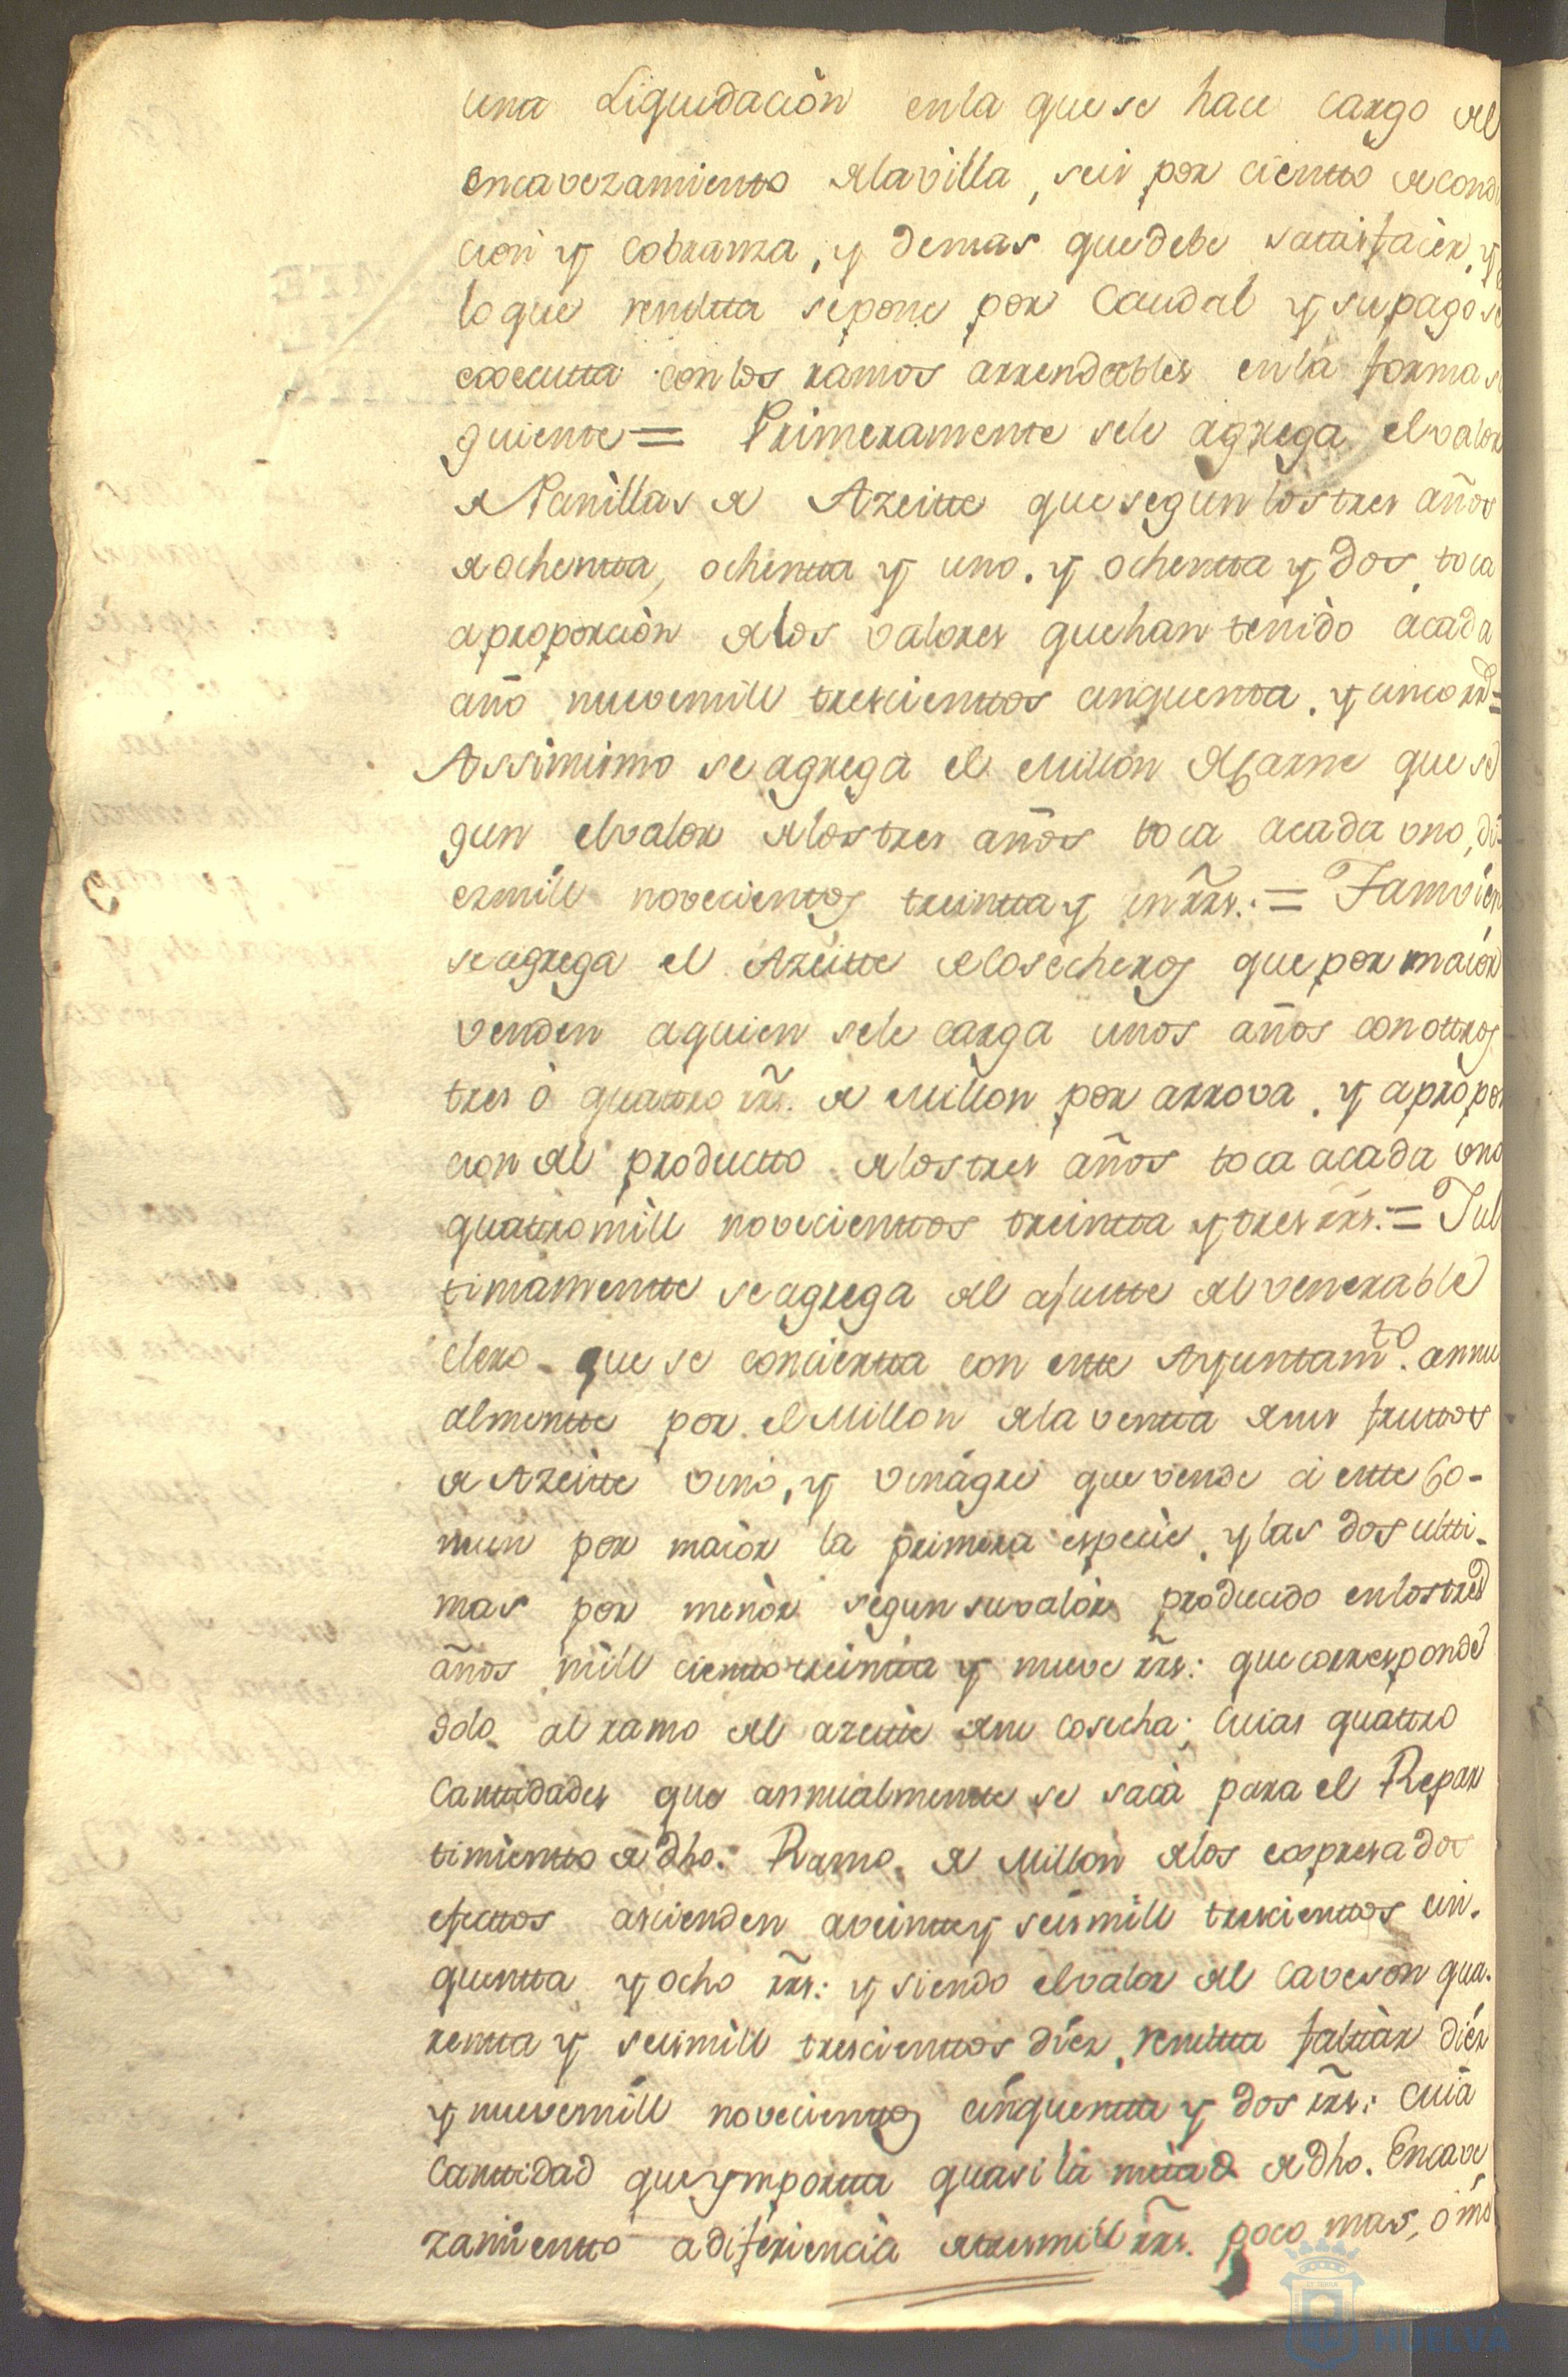 una Liquidaciòn enla que se hace cargo del
encavezamientto delavilla, seis por cientto de condu
cion y cobranza, y demas quedebe sattisfacèr, y
lo que resultta sepone por Caudal y supago se
executta con los ramos arrendables enla forma si
guiente = Primeramente sele agrega elvalor
de Panillas de Azeitte que segun los tres años
de ochentta, ochentta y uno. y ochentta y dos, toca
a proporciòn delos valores quehan tenido acada
año nuevemill trescienttos cinquenta. y cinco rrs =
Assimismo se agrega el Millòn de Carne que se
gun elvalor delos tres años toca acada uno, di
ezmill novecienttos treintta y un rrs. = Tamvien
se agrega el Azeitte de Cosecheros que por maiòr
venden aquien sele carga unos años con ottros
tres ò quattro rrs. de Millon por arrova. y a propor
cion del productto delos tres años toca acada uno
quattromill novecienttos treintta y tres rrs. = Iul
timamentte se agrega del ajustte del venerable
clero que se conciertta con estte Ayuntamto. annu
almentte por el Millon dela ventta de sus fruttos
de Azeitte vino, y vinagre que vende à estte Co-
mun por maiòr la primera especie, y las dos ultti-
mas por menòr segun suvalòr producido enlostres
años mill cientto treintta y nueve rrs: que corresponde
solo al ramo del azeitte de su cosecha; cuias quattro
Canttidades que annualmentte se saca para el Repar
timientto de dho. Ramo de Millòn delos expresados
efecttos ascienden aveintte y seismill trescienttos cin.
quentta y ocho rrs: y siendo elvalor del Caveson qua.
rentta y seismill trescienttos diez, resultta faltàr diez
y nuevemill novecienttos cinquentta y dos rrs: cuia
Canttidad que ymportta quasi la mitad de dho. Encave
zamientto a diferiencia de tresmill rrs. poco mas, o mo
HUELVA